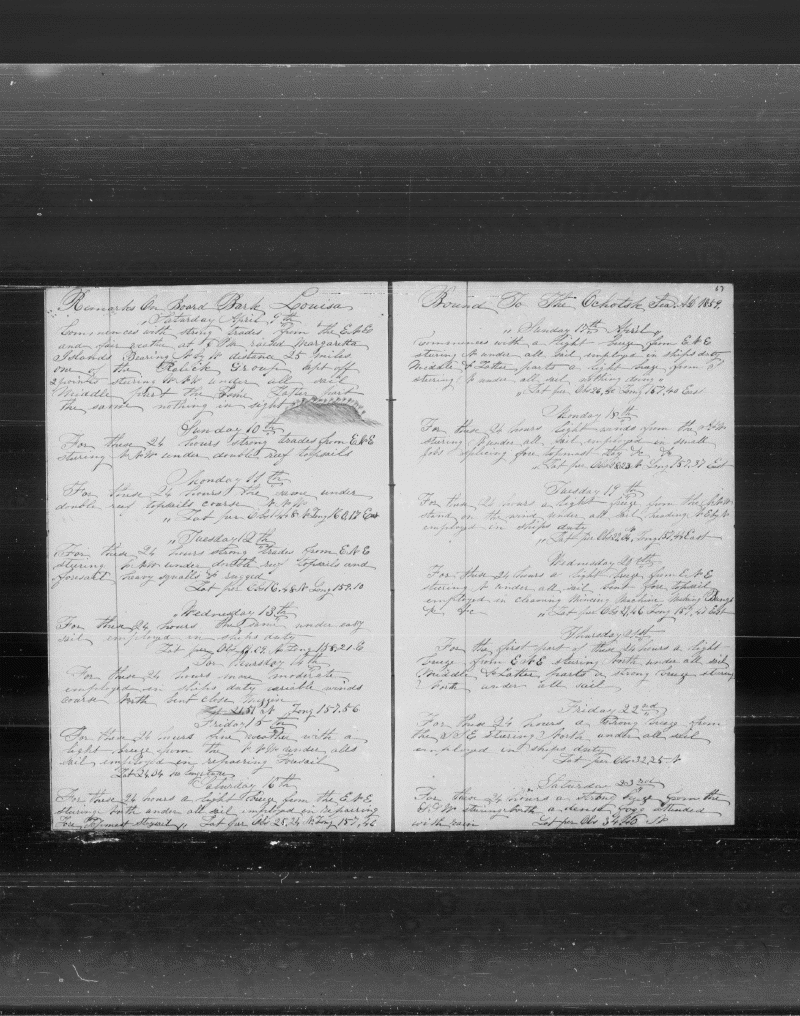 Remarks On Board Bark Louisa
" Saturday April 9th
Commences with strong trades from the E.N.E
and fair weather at 6 P.M. raised Margaretta
Islands Bearing N by W distance 25 miles
one of the Radick Group kept off
2 points stering N.W under all sail
Middle part the same Latter part
the same nothing in sight
Sunday 10th
For these 24 hours strong trades from E.N.E
stering N.W under double reef topsails
Monday 11th
For these 24 hours the same under
double reef topsails coarse N.N.W
" Lat per Obs 14.8 N Long 160,17 East
" Tuesday 12th
For these 24 hours strong trades from E.N.E
stering N.N.W under double reef topsails and
foresail heavy squalls & rugged
Lat per Obs 16.48 N Long 159.10
" Wednesday 13th
For these 24 hours the same under easy
sail employed in ships duty
Lat per Obs 19.59 N Long 158.21 E
For Thursday 14th
For these 24 hours more moderate
employed in ships duty variable winds
coars North but close
Long 157.56
Friday 15th
For these 24 hours fine weather with a
light breeze from the N.N.W under all
sail employed in repairing Foresail
Saturday 16th
For these 24 hours a light breeze from the E.N.E
stering North under all sail employed in repairing
Fore Topmast Staysail " Lat per Obs 25,24 N Long 157,46
67
Bound To The Ochotsk Sea AD 1859,
" Sunday 17th April "
Commences with a light breeze from E.N.E
stering N under all sail employd in ships duty
Middle & Latter parts a light breeze from
stering N under all sail nothing doing "
" Lat per Obs 26,45 Long 157,40 East
Monday 18th
For these 24 hours light winds from the
stering N under all sail employed in small
jobs replicing fore topmast stay &c &c
" Lat per Obs N Long 157,37 East
Tuesday 19th
For these 24 hours a light breeze from the
stand on the wind under all sail heading N.E by N
employed in ships duty
" Lat per Obs East
Wednesday 20th
For these 24 hours a light breeze from N.E
stering N under all sail bent fore topsail
employed in cleaning Mincing Machine
&c &c " Lat per Obs Long East
Thursday 21st
For the first part of these 24 hours a light
breeze from E.N.E stering North under all sail
Middle & Latter parts a strong breeze stering
North under all sail
Friday 22nd
For these 24 hours a strong breeze from
the stering North under all sail
employed in ships duty
Lat per Obs 32,25 N
Saturday 23rd
For these 24 hours a strong breeze from the
stering North a dense fogg attended
with rain Lat per Obs N